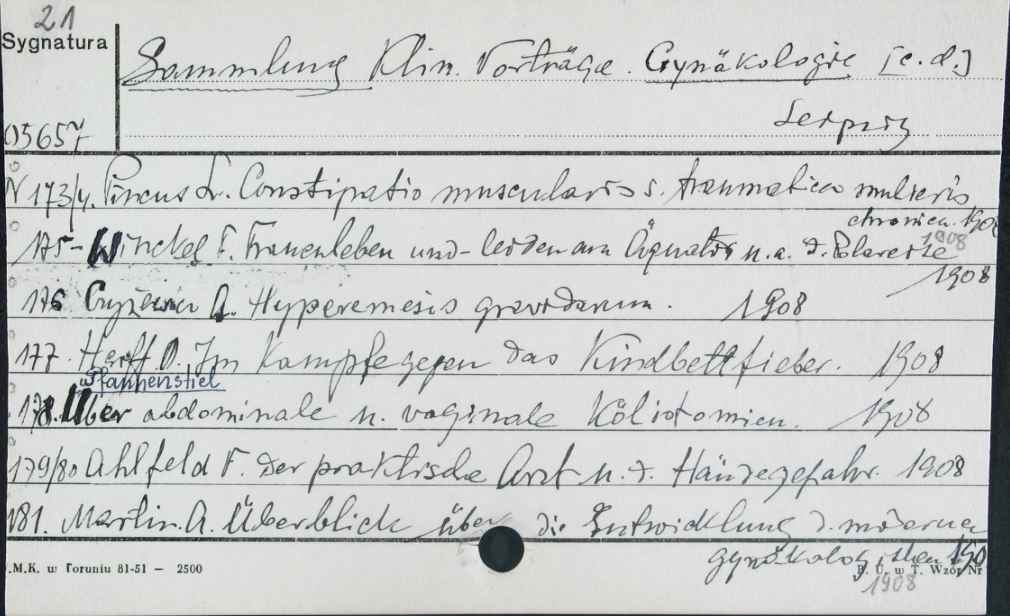 21
Sygnatura
Sammlung Klin. Vorträge. Gynäkologie [c.d.]
05657
Leipzig
N 173/4. Pincus L. Constipatio muscularis s. traumatica mulieris
chronica. 190
1908
175- Winckel F. Frauenleben und-leiden am Äquator u. a. d. Polareise
1908
176 A. Hyperemesis gravidarum. 1908
177. Herff O. Im Kampfe gegen das Kindbettfieber. 1908
Pfannenstiel
178. Über abdominale u. vaginale Köliotomien. 1908
179/80 Ahlfeld F. Der praktische Arzt u. d. Händegefahr. 1908
181. Martin. A. Überblick über die Entwicklung d. moderne
gynäkolog 190
.M.K. w Toruniu 81-51 — 2500
B. U. w T. Wzór Nr
1908